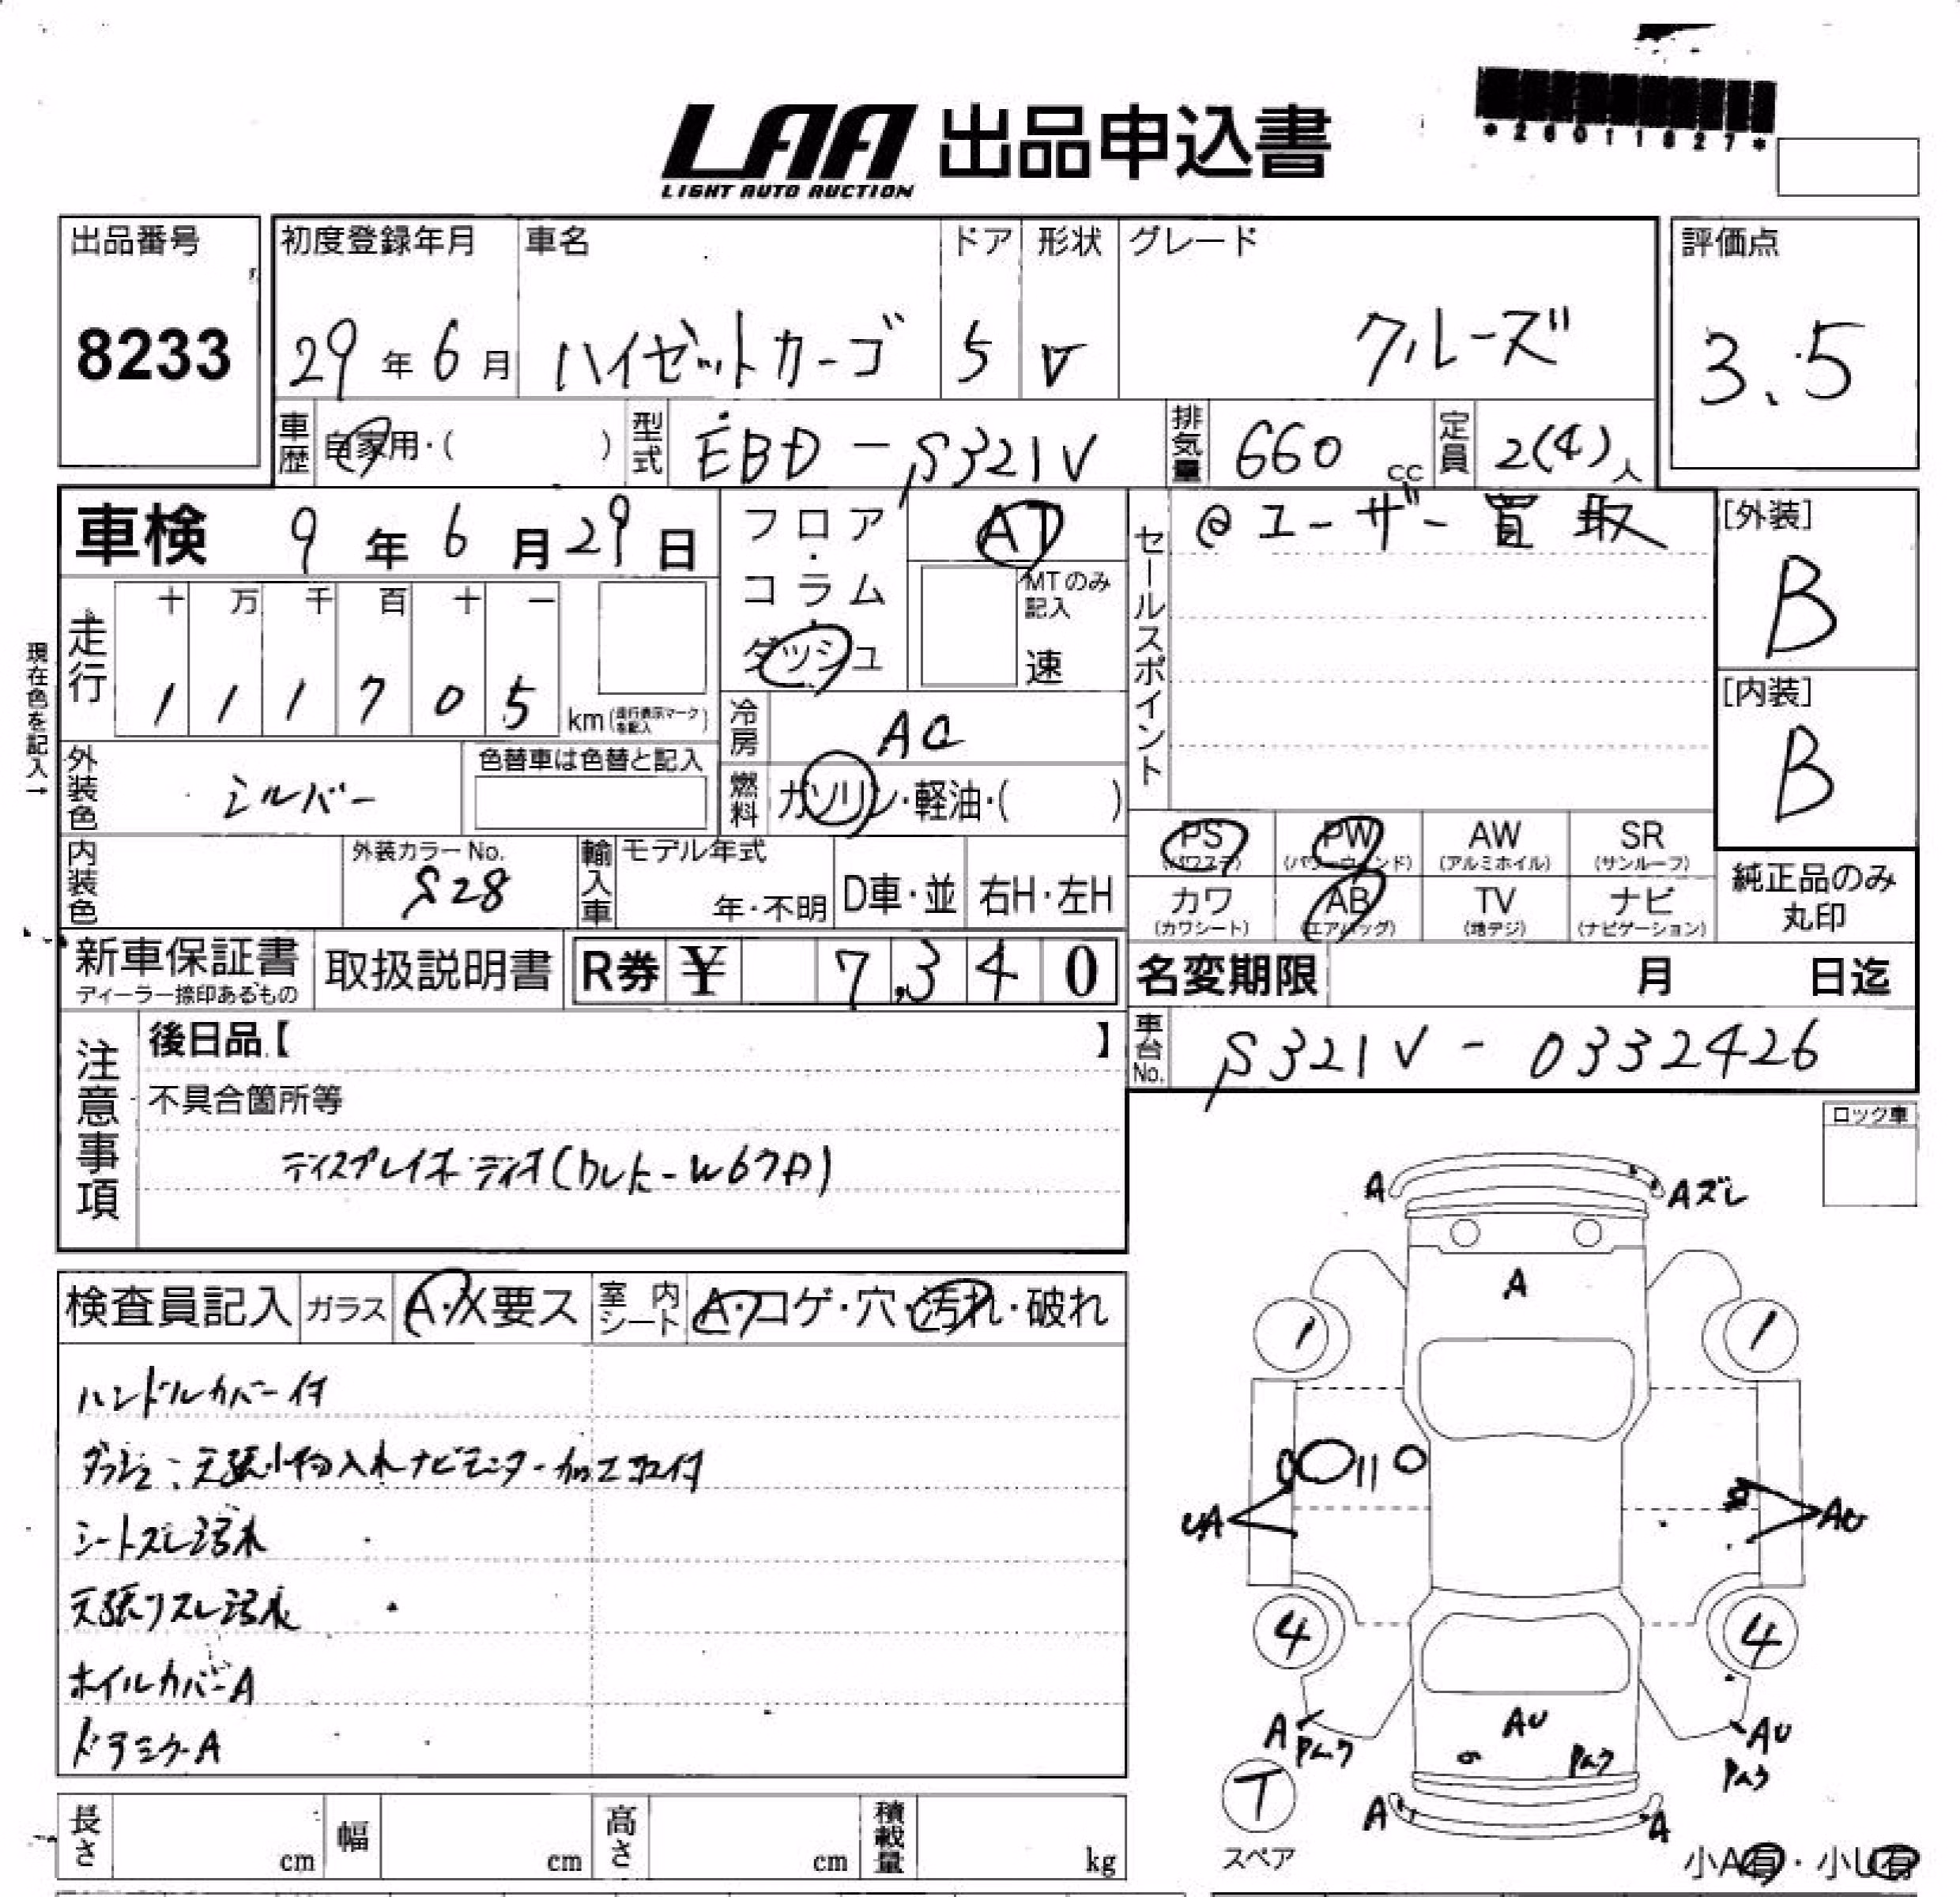 *26011827*
LAA 出品申込書
LIGHT AUTO AUCTION
出品番号 初度登録年月 車名 ドア 形状 グレード 評価点
8233 29年6月 ハイゼットカーゴ 5 V クルーズ 3.5
車歴 自家用・( ) 型式 EBD-S321V 排気量 660cc 定員 2(4)人
車検 9年6月29日 フロア・コラム・ダッシュ AT セールスポイント @ユーザー買取 [外装] B
MTのみ記入 速
現在色を記入→
走行 十 万 千 百 十 一
1 1 1 7 0 5 km (走行表示マークを記入) [内装] B
冷房 AC
外装色 シルバー 色替車は色替と記入 燃料 ガソリン・軽油・( )
PS (パワステ) PW (パワーウィンド) AW (アルミホイル) SR (サンルーフ)
内装色 外装カラーNo. S28 輸入車 モデル年式 年・不明 D車・並 右H・左H
カワ (カワシート) AB (エアバッグ) TV (地デジ) ナビ (ナビゲーション) 純正品のみ丸印
新車保証書 ディーラー捺印あるもの 取扱説明書 R券 ¥ 7,340 名変期限 月 日迄
注意事項 後日品【 】 車台No. S321V-0332426
不具合箇所等 ロック車
A Aズレ
検査員記入 ガラス A・X要ス 室内シート A・コゲ・穴・汚れ・破れ
A
1 1
ハンドルカバー付
シートスレ汚れ
UA AU
4 4
ホイルカバーA
ドアミラーA
A AU AU
T
スペア
A A
長さ cm 幅 cm 高さ cm 積載量 kg
小A有・小U有